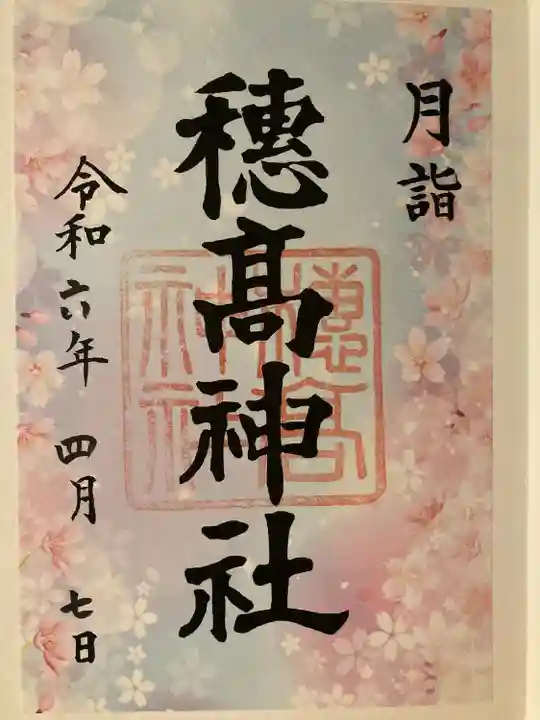 月詣
穗髙神社
穗髙
神社
令和六年 四月 七日